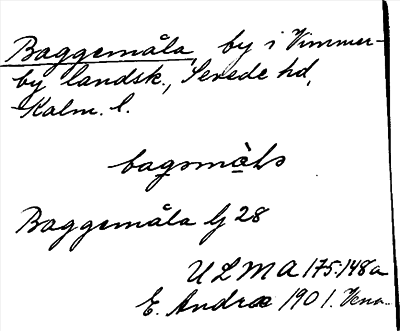 Baggemåla, by i Vimmer-
by landsk., Sevede hd,
Kalm. l.
Baggemåla lj 28
ULMA 175:148a
E. Andræ 1901.